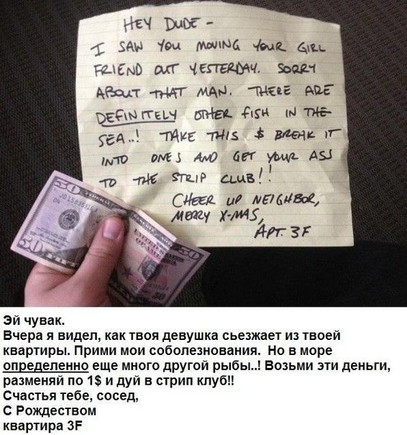 HEY DUDE -
I SAW YOU MOVING YOUR GIRL
FRIEND OUT YESTERDAY. SORRY
ABOUT THAT MAN. THERE ARE
DEFINITELY OTHER FISH IN THE
SEA..! TAKE THIS $ BREAK IT
INTO ONES AND GET YOUR ASS
TO THE STRIP CLUB!!
CHEER UP NEIGHBOR,
MERRY X-MAS,
APT. 3F
50
50
Эй чувак.
Вчера я видел, как твоя девушка сьезжает из твоей
квартиры. Прими мои соболезнования. Но в море
определенно еще много другой рыбы..! Возьми эти деньги,
разменяй по 1$ и дуй в стрип клуб!!
Счастья тебе, сосед,
С Рождеством
квартира 3F